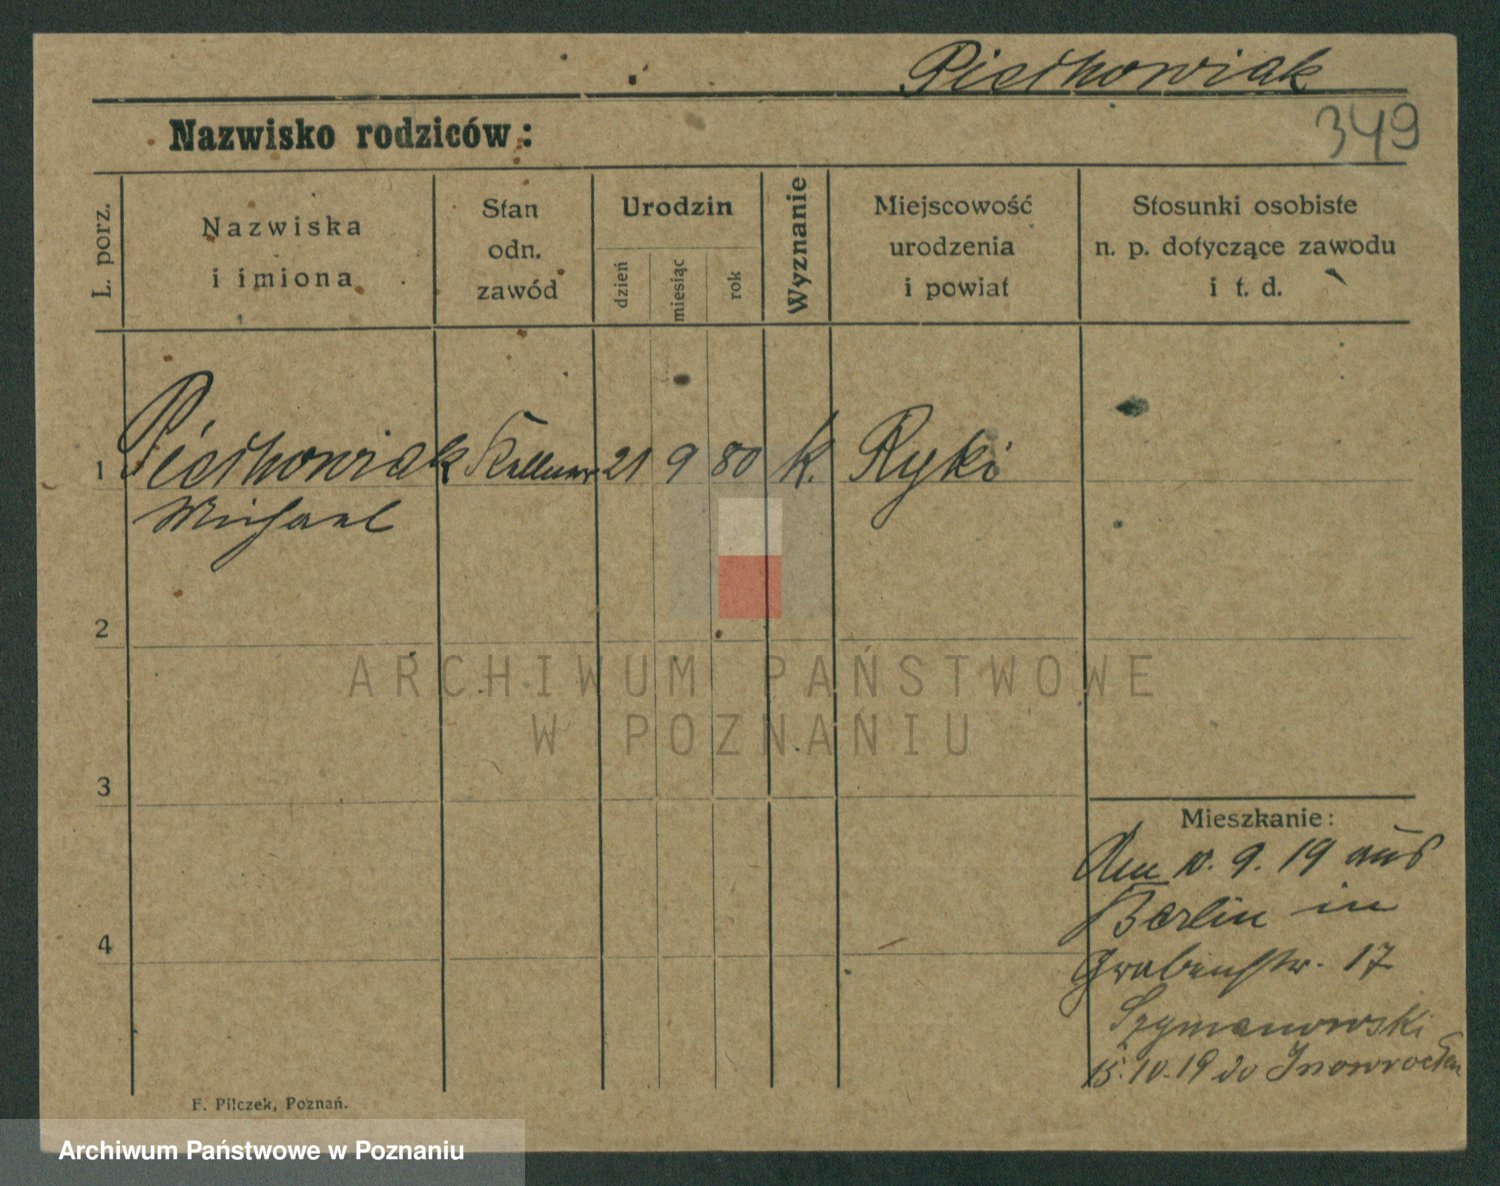 Piechowiak
349
Nazwisko rodziców:
L. porz.
Nazwiska
i imiona
Stan
odn.
zawód
Urodzin
dzień
miesiąc
rok
Wyznanie
Miejscowość
urodzenia
i powiat
Stosunki osobiste
n. p. dotyczące zawodu
i t. d.
1 Piechowiak Kellner 21 9 80 k. Ryki
Michael
2
ARCHIWUM PAŃSTWOWE
W POZNANIU
3
Mieszkanie:
10. 9. 19 aus
Berlin in
4
Grabenstr. 17
Szymanowski
15. 10. 19 do Inowrocław
F. Pilczek, Poznań.
Archiwum Państwowe w Poznaniu